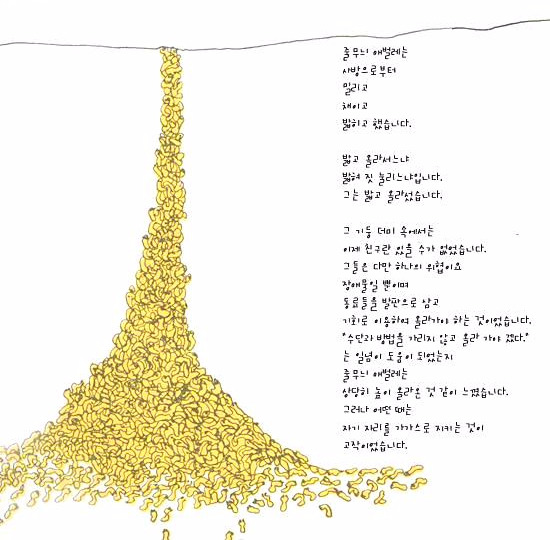 줄무늬 애벌레는
사방으로부터
밀리고
채이고
밟히고 했습니다.
밟고 올라서느냐
밟혀 짓눌리느냐입니다.
그는 밟고 올라섰습니다.
그 기둥 더미 속에서는
이제 친구란 있을 수가 없었습니다.
그들은 다만 하나의 위협이요
장애물일 뿐이며
동료들을 발판으로 삼고
기회로 이용하여 올라가야 하는 것이었습니다.
"수단과 방법을 가리지 않고 올라 가야 겠다."
는 일념이 도움이 되었는지
줄무늬 애벌레는
상당히 높이 올라온 것 같이 느꼈습니다.
그러나 어떤 때는
자기 자리를 가까스로 지키는 것이
고작이었습니다.